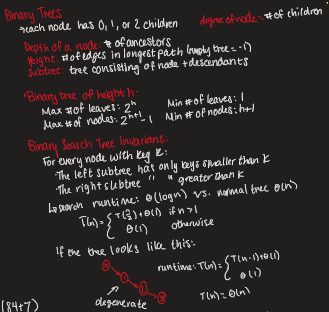 Binary Trees
→ each node has 0, 1, or 2 children
degree of node = # of children
Depth of a node: # of ancestors
Height: # of edges in longest path (empty tree = -1)
Subtree: tree consisting of node + descendants
*Binary tree of height h:
Max # of leaves: 2^h Min # of leaves: 1
Max # of nodes: 2^(h+1) - 1 Min # of nodes: h+1
Binary Search Tree Invariant:
For every node with key k:
The left subtree has only keys smaller than k
The right subtree " " greater than k
↳ search runtime: Θ(log n) vs. normal tree Θ(n)
T(n) = { T(n/2) + Θ(1) if n > 1
Θ(1) otherwise
If the tree looks like this:
runtime: T(n) = { T(n-1) + Θ(1)
Θ(1)
T(n) = Θ(n)
degenerate
(84+7)